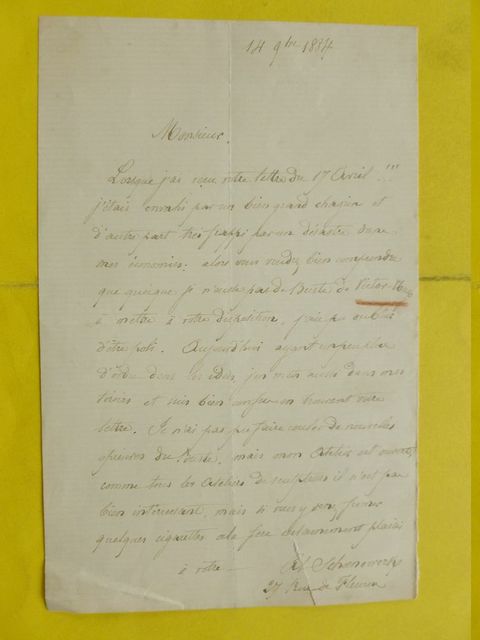 14 9bre 1884
Monsieur.
Lorsque j'ai reçu votre lettre du 17 Avril ..!!!
j'étais envahi par un bien grand chagrin et
d'autre part très frappé par un désastre dans
mes économies; alors vous voudrez bien comprendre
que quoique je n'eusse pas de Buste de Victor Hugo
à mettre à votre disposition, j'aie pu oublier
d'être poli. Aujourd'hui ayant un peu plus
d'ordre dans les idées j'en mets aussi dans mes
tiroirs et suis bien confus en trouvant votre
lettre. Je n'ai pas pu faire couler de nouvelles
épreuves du Buste, mais mon atelier est ouvert,
comme tous les ateliers de sculpteurs il n'est pas
bien intéressant, mais si vous y venez fumer
quelques cigarettes cela fera certainement plaisir
à votre —
27 Rue de Fleurus